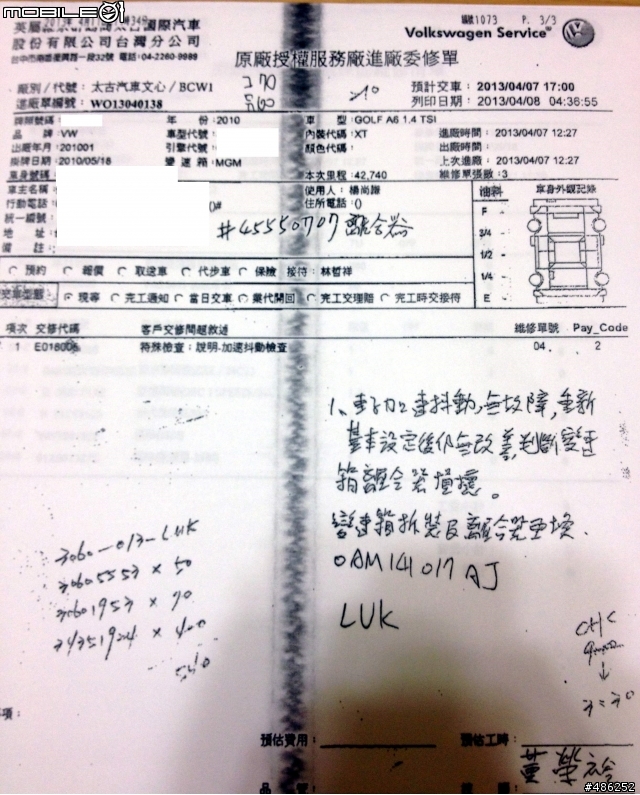 mobile01
編號1073 P. 3/3
國際汽車
股份有限公司台灣分公司
Volkswagen Service
電話：04-2260-9989
原廠授權服務廠進廠委修單
廠別／代號：太古汽車文心／BCW1
預計交車：2013/04/07 17:00
進廠單編號：WO13040138
列印日期：2013/04/08 04:36:55
牌照號碼： 年 份：2010 車 型：GOLF A6 1.4 TSI
品 牌：VW 車型代號： 內裝代碼：XT 進廠時間：2013/04/07 12:27
出廠年月：201001 引擎代號： 顏色代碼： 出廠時間：
掛牌日期：2010/05/18 變速箱：MGM 上次進廠：2013/04/07 12:27
車身號碼 本次里程：42,740 維修單張數：3
車主名稱 使用人：楊尚諧 油料 車身外觀記錄
行動電話： ()# 住所電話：()
統一編號： #45550707 離合器
地 址：
備 註：
F
3/4
1/2
1/4
E
預約 報價 取送車 代步車 保險 接待：林哲祥
交車型態 現等 完工通知 當日交車 業代開回 完工交理賠 完工時交接待
項次 交修代碼 客戶交修問題敘述 維修單號 Pay_Code
1 E01600 特殊檢查：說明-加速抖動檢查 04. 2
1、車子加速抖動，無故障，重新
基本設定後仍無改善，判斷變速
箱離合器損壞。
變速箱拆裝及離合器更換.
0AM141017AJ
LUK
3060-013-LUK
30605553 × 50
30601953 × 90
34351924 × 400
540
預估費用： 預估工時：
#486252